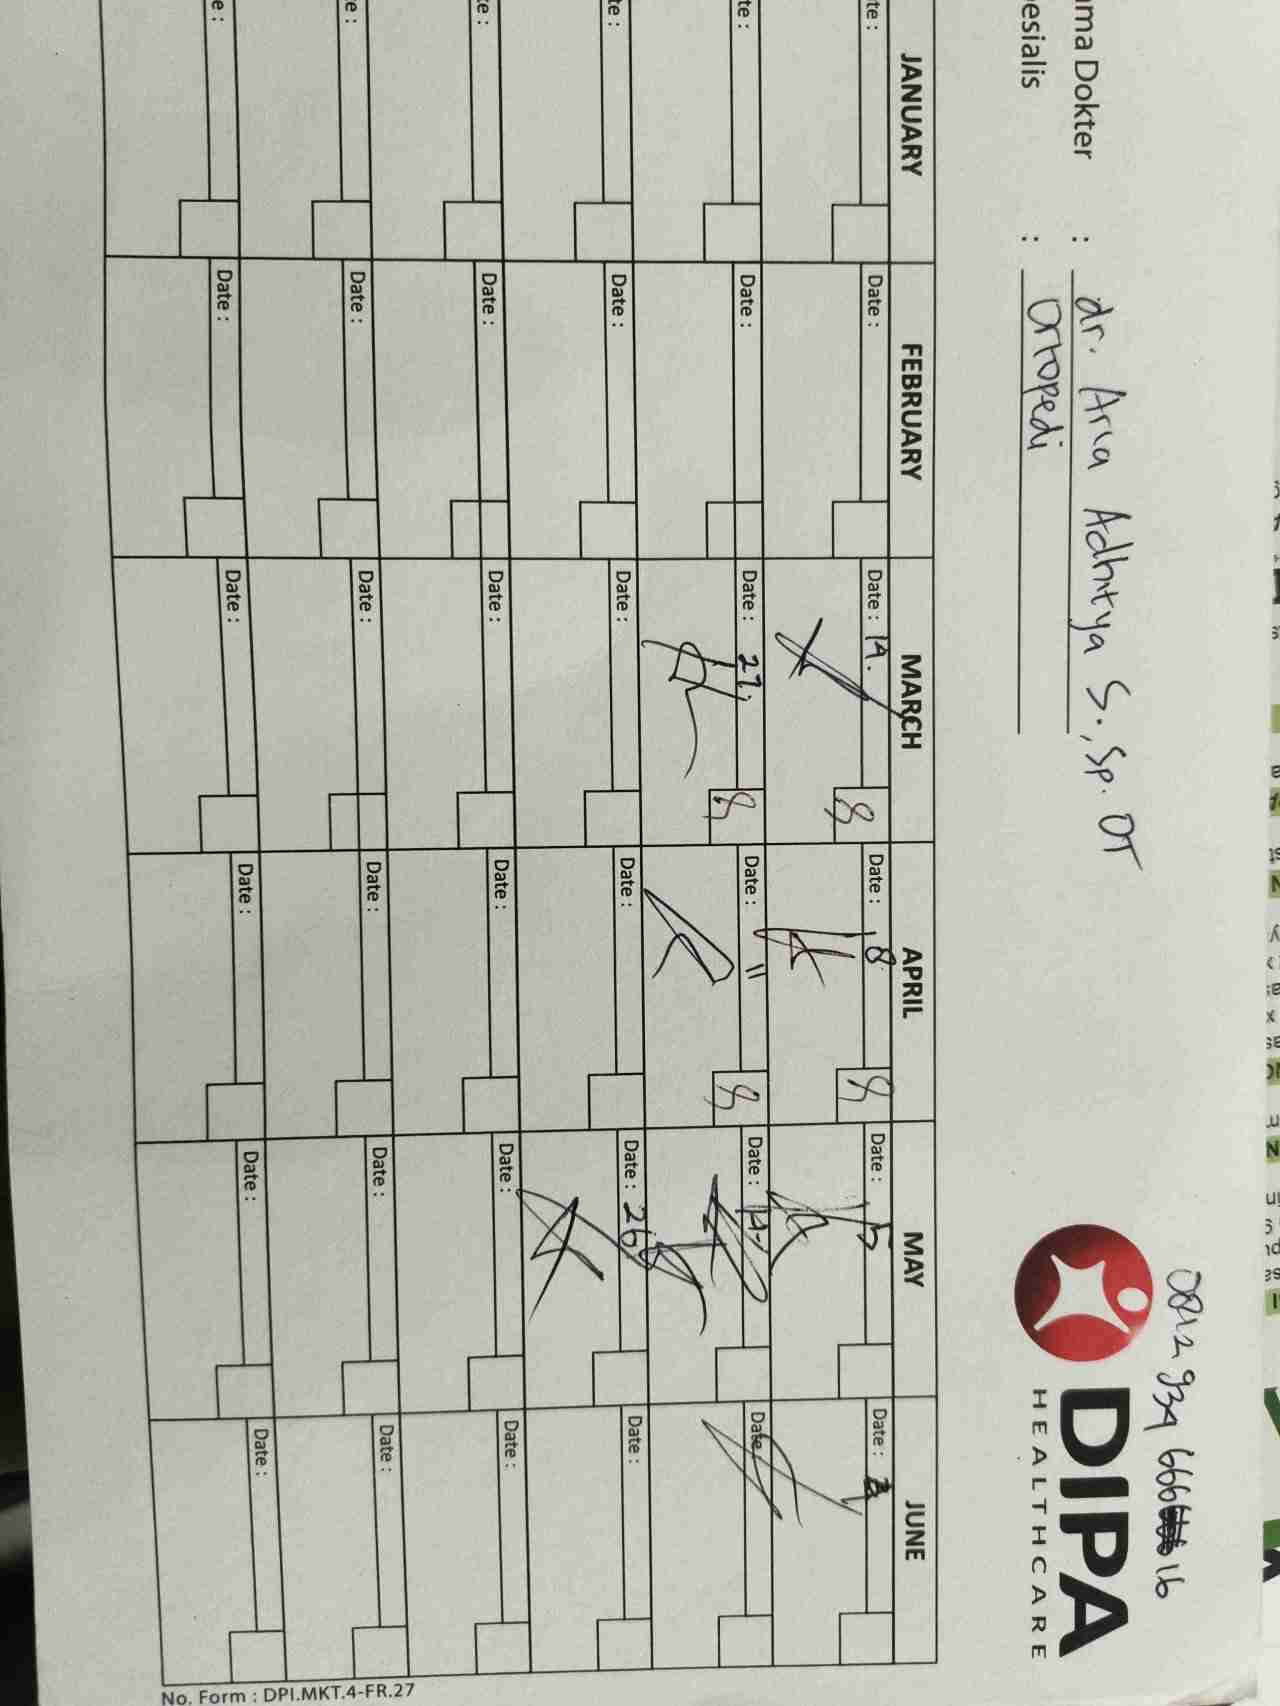 0812 934 666
16
DIPA
HEALTHCARE
ma Dokter : dr. Aria Adhitya S., Sp. OT
esialis : Ortopedi
JANUARY FEBRUARY MARCH APRIL MAY JUNE
te : Date : Date : 14. Date : 8 Date : 5 Date :
te : Date : Date : 27, Date : 11 Date : 19 Date :
te : Date : Date : Date : Date : 26 Date :
te : Date : Date : Date : Date : Date :
e : Date : Date : Date : Date : Date :
e : Date : Date : Date : Date : Date :
No. Form : DPI.MKT.4-FR.27